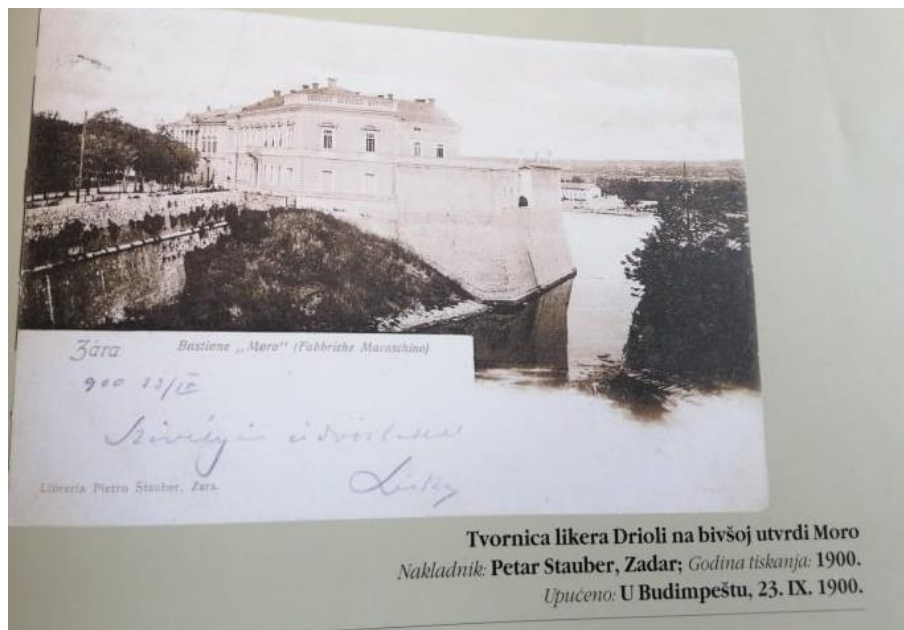 Zára
Bastione „Moro" (Fabbriche Maraschino)
900 23/IX
Szívélyes üdvözlettel
Libreria Pietro Stauber, Zara.
Tvornica likera Drioli na bivšoj utvrdi Moro
Nakladnik: Petar Stauber, Zadar; Godina tiskanja: 1900.
Upućeno: U Budimpeštu, 23. IX. 1900.